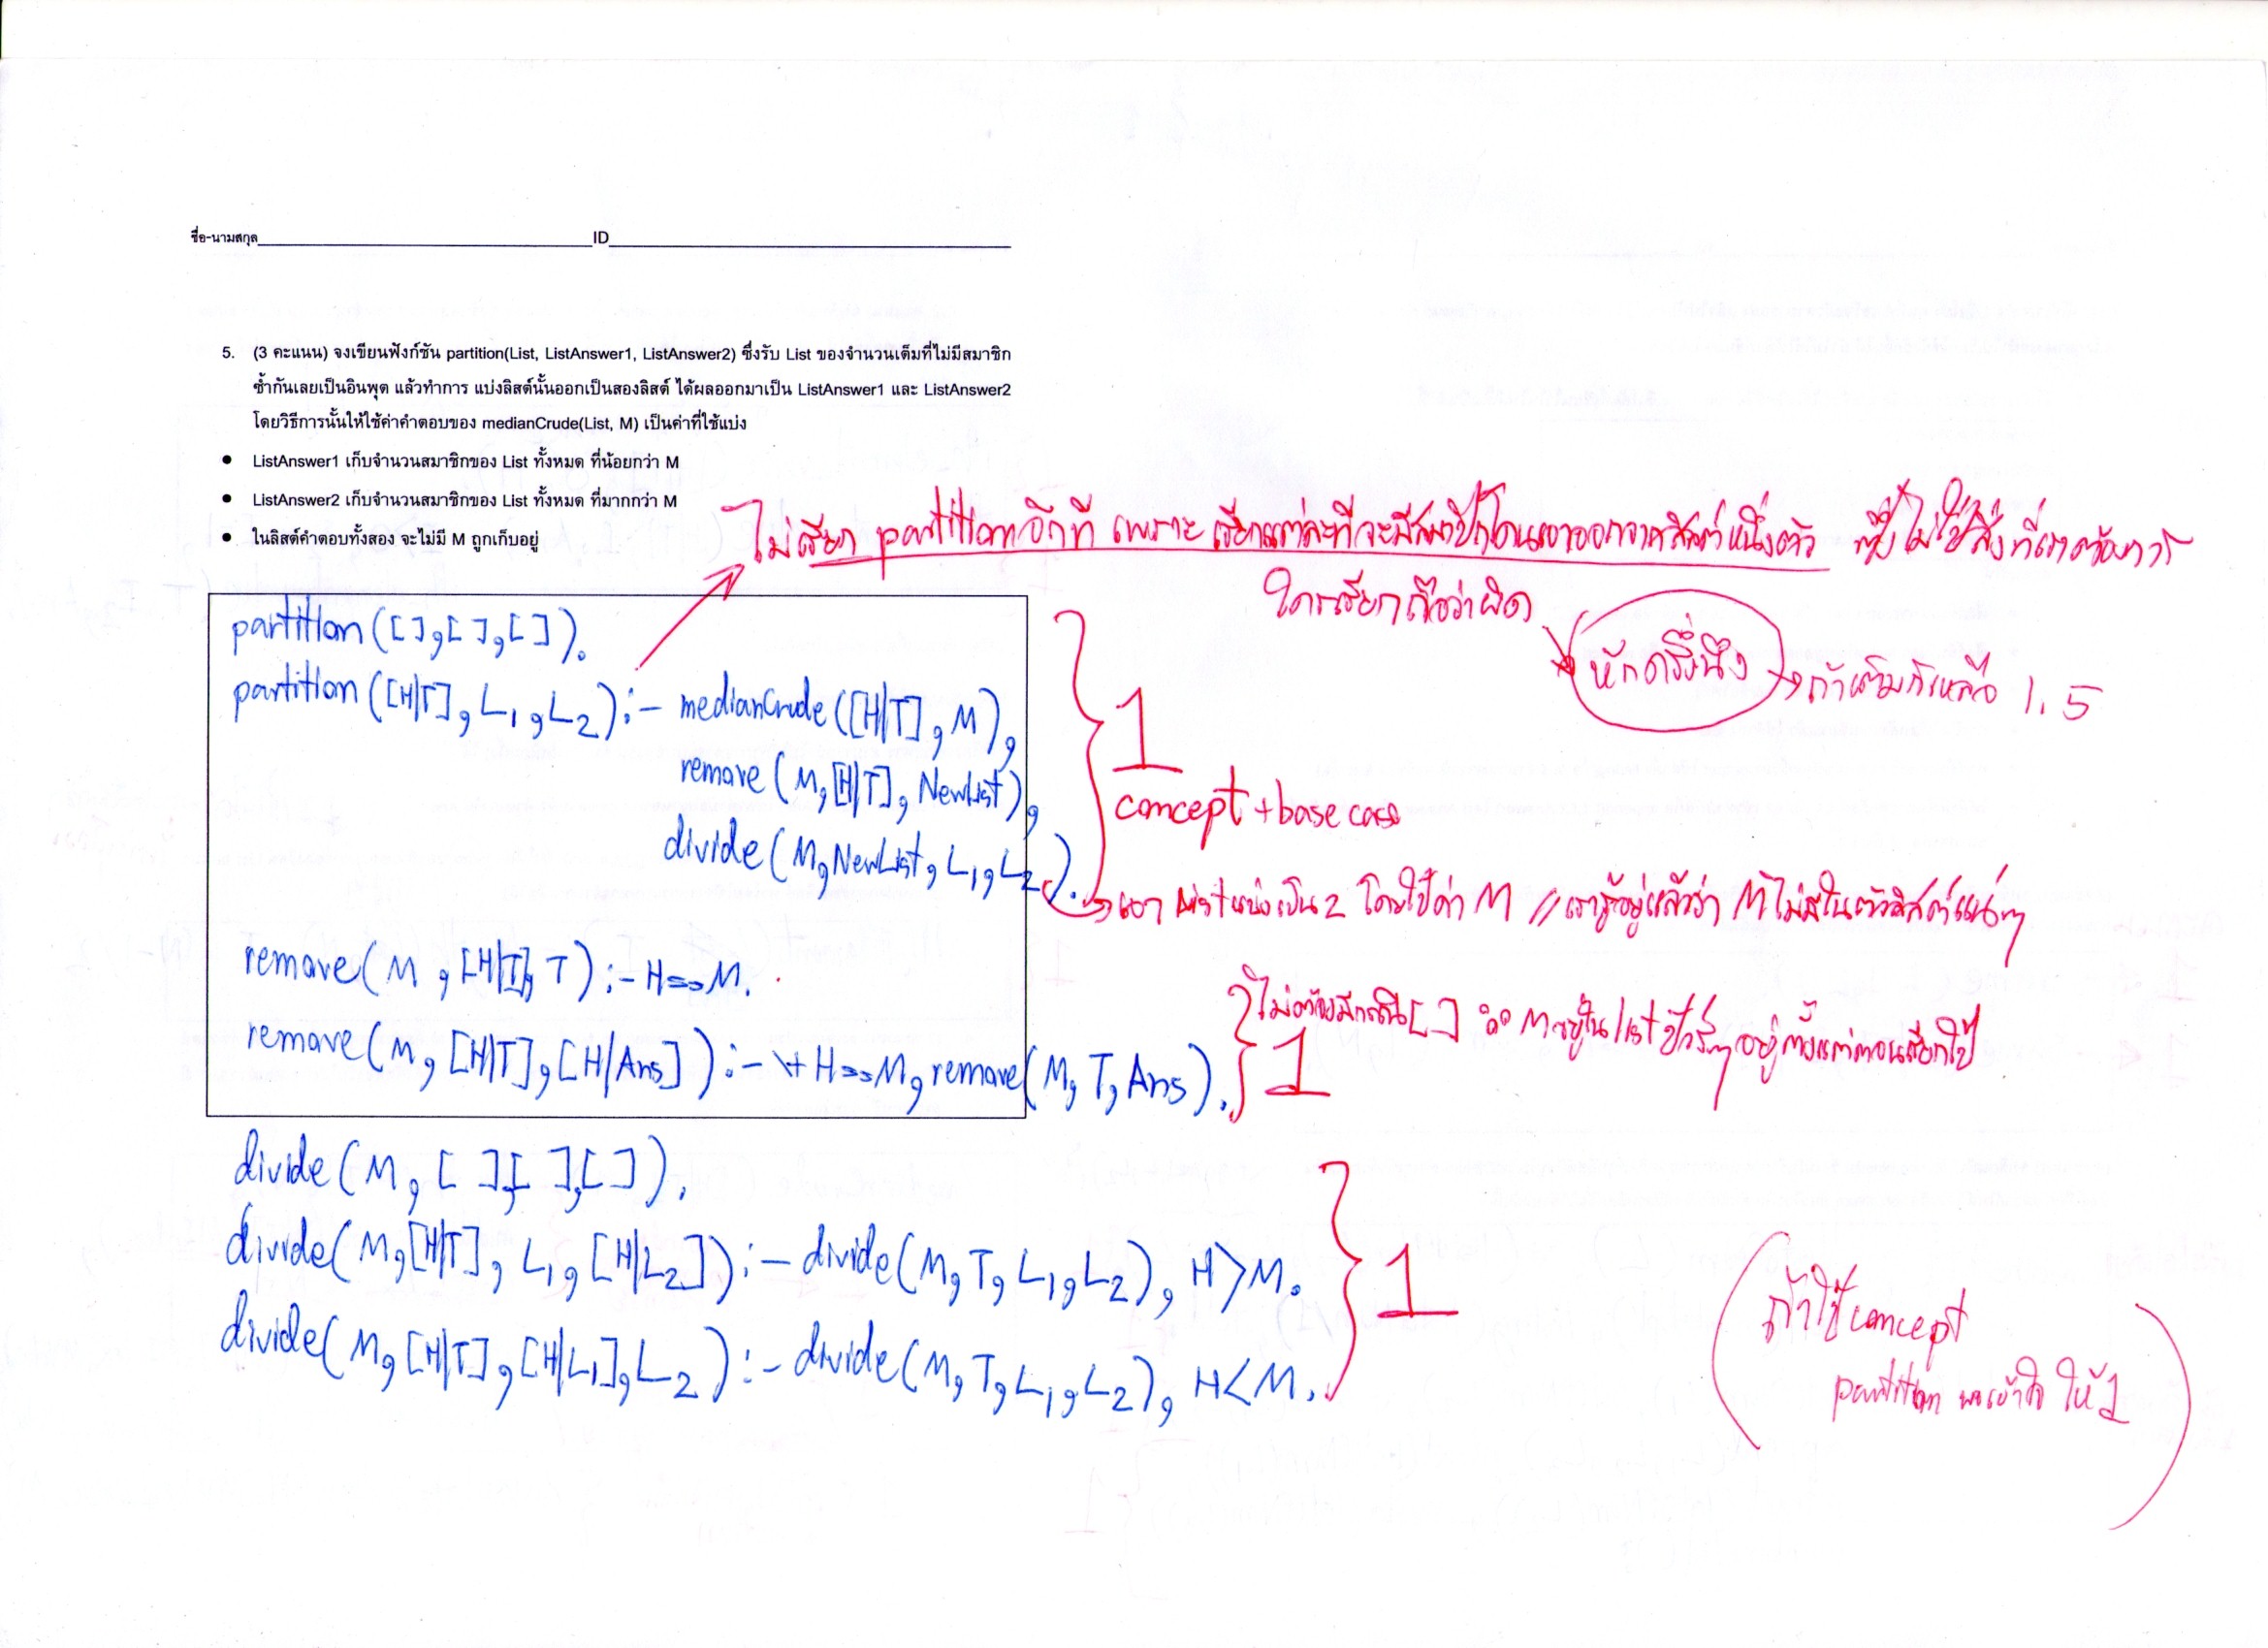 ชื่อ-นามสกุล ID
5. (3 คะแนน) จงเขียนฟังก์ชัน partition(List, ListAnswer1, ListAnswer2) ซึ่งรับ List ของจำนวนเต็มที่ไม่มีสมาชิก
ซ้ำกันเลยเป็นอินพุต แล้วทำการ แบ่งลิสต์นั้นออกเป็นสองลิสต์ ได้ผลออกมาเป็น ListAnswer1 และ ListAnswer2
โดยวิธีการนั้นให้ใช้ค่าคำตอบของ medianCrude(List, M) เป็นค่าที่ใช้แบ่ง
● ListAnswer1 เก็บจำนวนสมาชิกของ List ทั้งหมด ที่น้อยกว่า M
● ListAnswer2 เก็บจำนวนสมาชิกของ List ทั้งหมด ที่มากกว่า M
● ในลิสต์คำตอบทั้งสอง จะไม่มี M ถูกเก็บอยู่
ไม่เรียก partition อีกที เพราะ เรียกแต่ละทีจะมีสมาชิกโดนเอาออกจากลิสต์หนึ่งตัว ซึ่งไม่ใช่สิ่งที่เราต้องการ
ใครเรียกถือว่าผิด
หักครึ่งนึง
ถ้าเต็มก็เหลือ 1.5
partition([],[],[]).
partition([H|T],L1,L2):- medianCrude([H|T],M),
remove(M,[H|T],NewList),
divide(M,NewList,L1,L2).
1
concept + base case
เอา list แบ่งเป็น 2 โดยใช้ค่า M // เรารู้อยู่แล้วว่า M ไม่มีในตัวลิสต์แน่ๆ
remove(M,[H|T],T):-H==M.
remove(M,[H|T],[H|Ans]):-\+H==M,remove(M,T,Ans).
ไม่ต้องมีกรณี [] ∵ M อยู่ใน list จริงๆ อยู่ตั้งแต่ตอนเรียกใช้
1
divide(M,[],[],[]).
divide(M,[H|T],L1,[H|L2]):-divide(M,T,L1,L2),H>M.
divide(M,[H|T],[H|L1],L2):-divide(M,T,L1,L2),H<M.
1
(ถ้าใช้ concept
partition พอเข้าใจ ให้ 1)